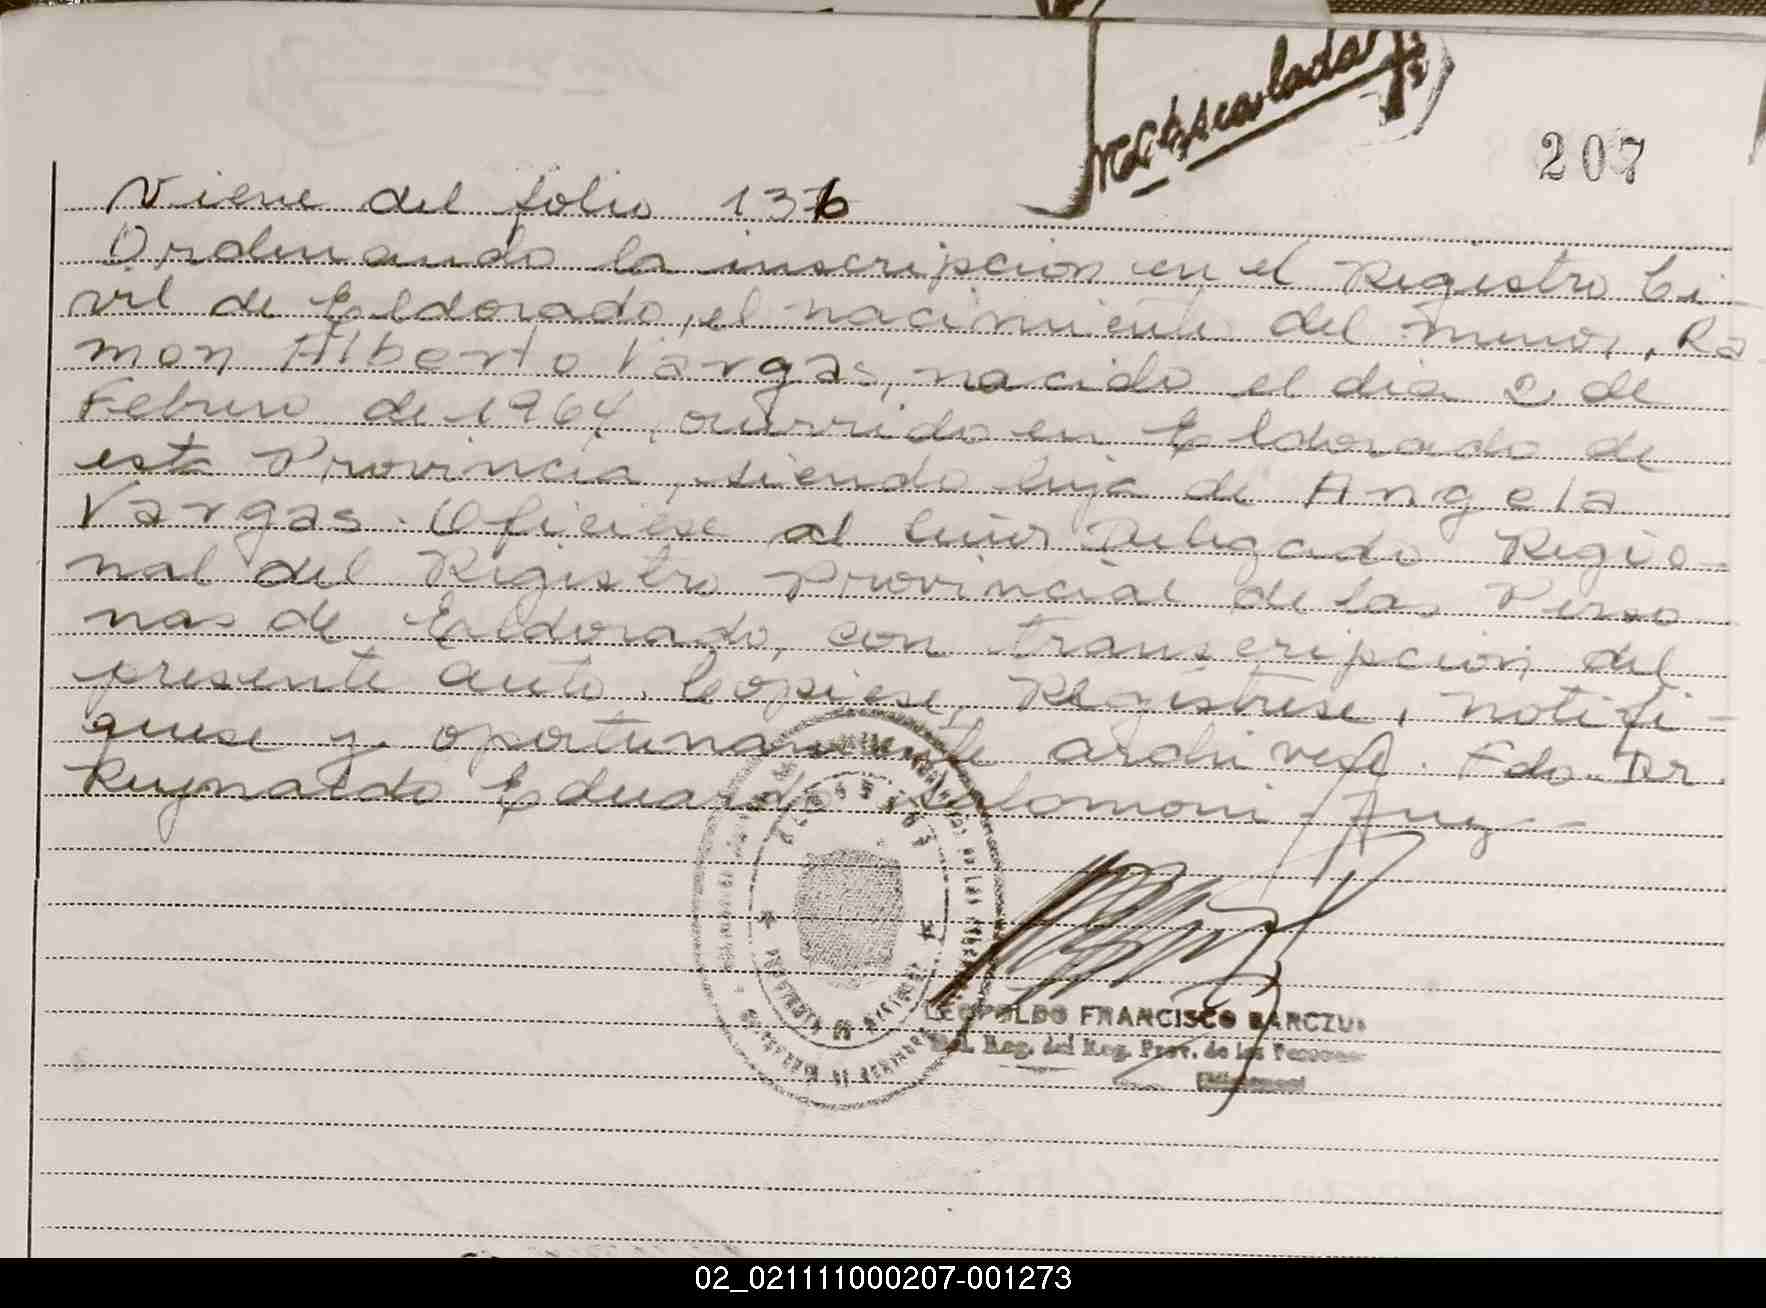 207
Viene del folio 136
Ordenando la inscripcion en el Registro Ci-
vil de Eldorado, el nacimiento del menor, Ra
mon Alberto Vargas, nacido el dia 2 de
Febrero de 1964, ocurrido en Eldorado de
esta Provincia, siendo hijo de Angela
Vargas. Oficiese al Señor Delegado Regio-
nal del Registro Provincial de las Perso
nas de Eldorado, con transcripcion del
presente auto. Copiese, Registrese, notifi-
quese y oportunamente archivese. Fdo. Dr.
Reynaldo Eduardo Salomoni Juez
LEOPOLDO FRANCISCO
Del. Reg. del Reg. Prov. de las Personas
02_021111000207-001273